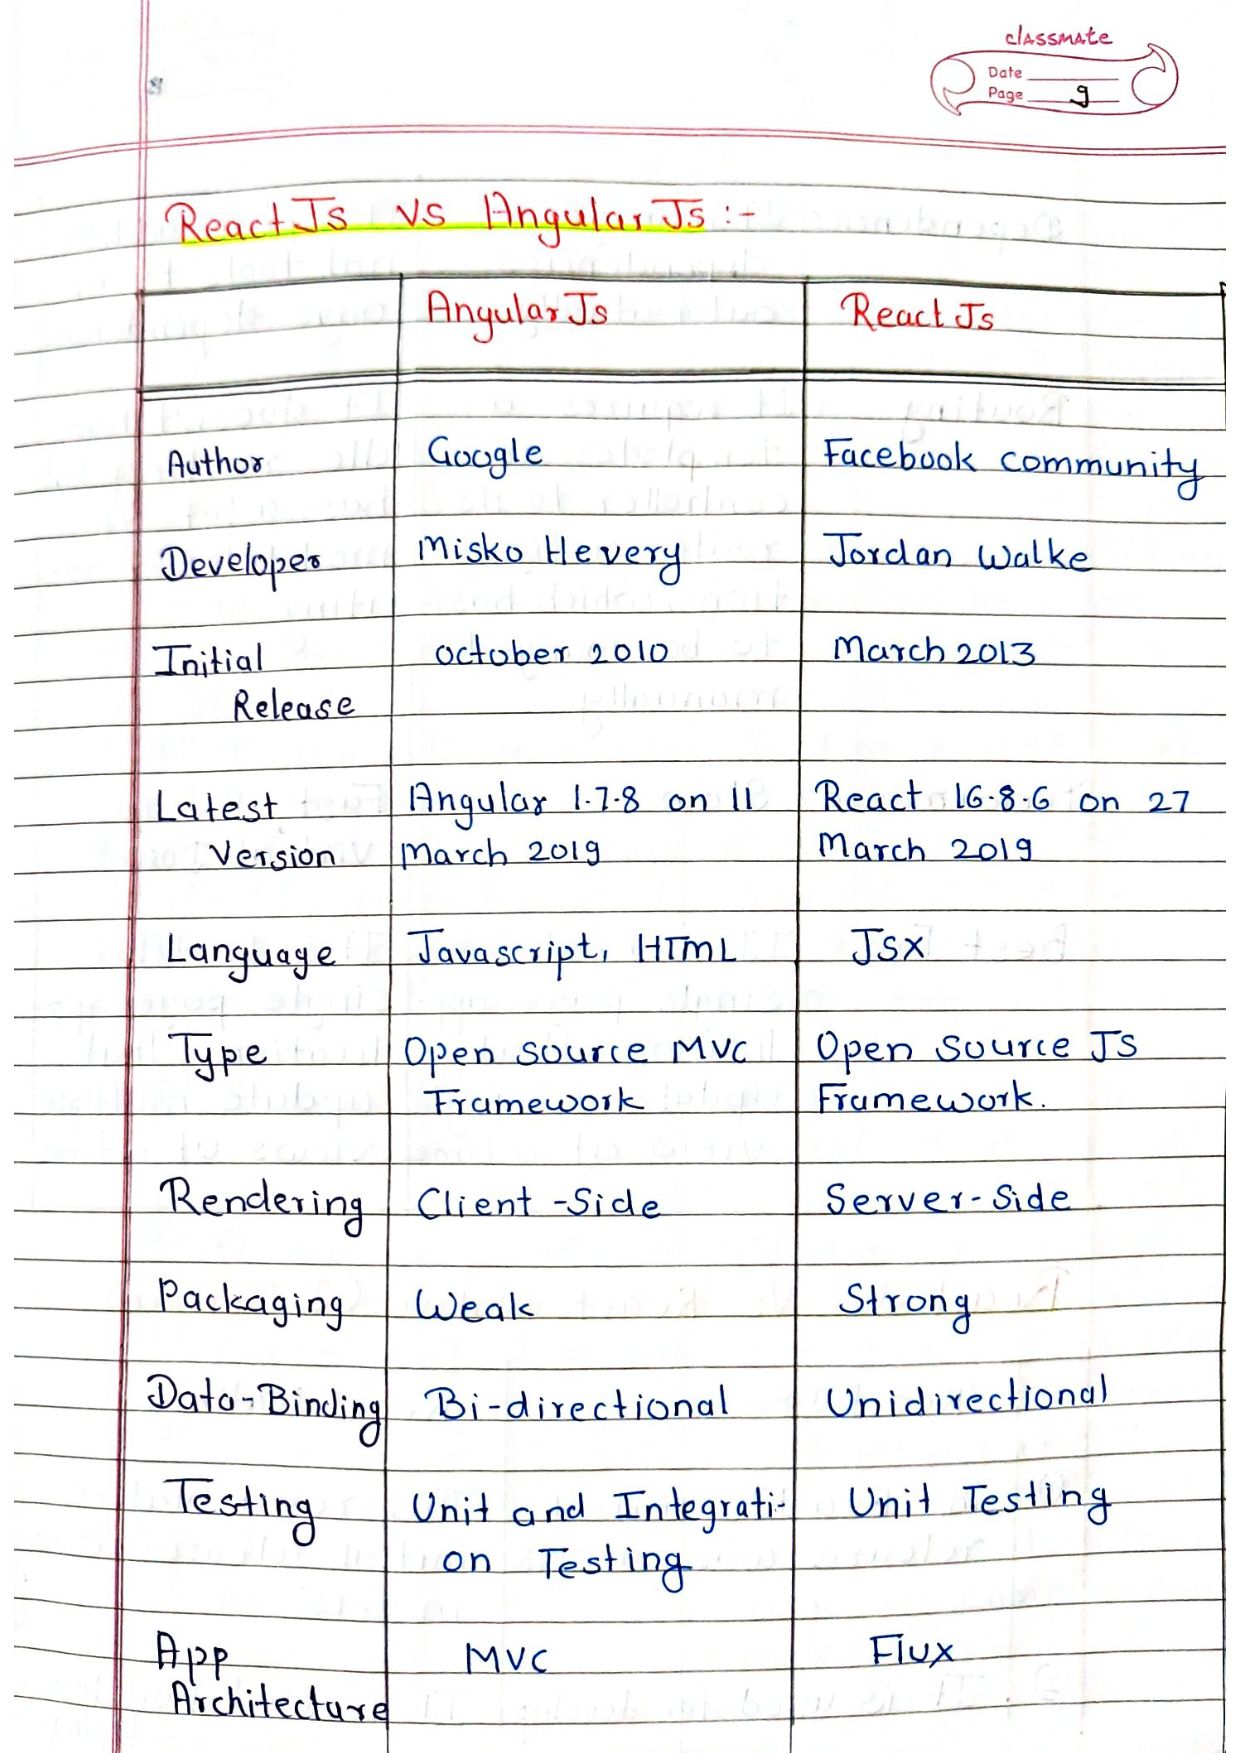 classmate
Date
Page 9
ReactJs vs AngularJs :-
AngularJs ReactJs
Author Google Facebook community
Developer Misko Hevery Jordan Walke
Initial october 2010 March 2013
Release
Latest Angular 1.7.8 on 11 React 16.8.6 on 27
Version March 2019 March 2019
Language Javascript, HTML JSX
Type Open source MVC Open Source JS
Framework Framework.
Rendering Client-Side Server-Side
Packaging Weak Strong
Data-Binding Bi-directional Unidirectional
Testing Unit and Integrati- Unit Testing
on Testing
App MVC Flux
Architecture